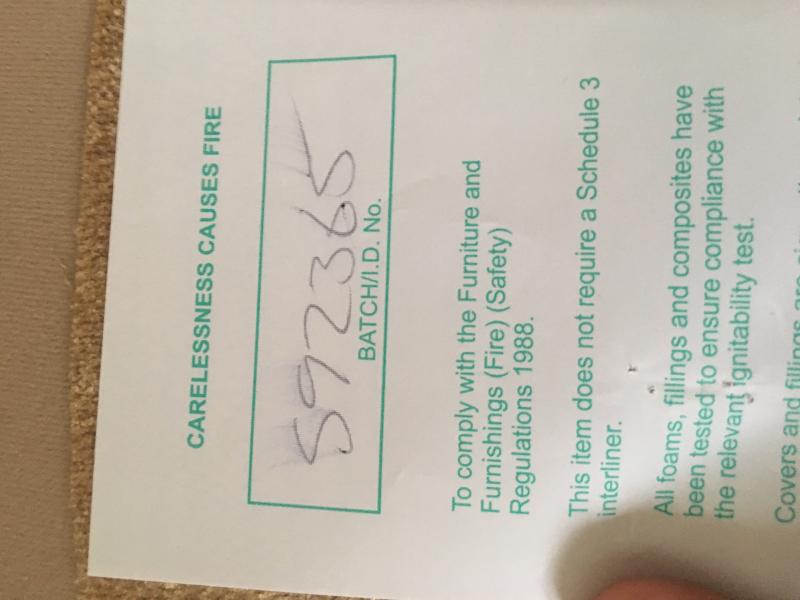 CARELESSNESS CAUSES FIRE
592365
BATCH/I.D. No.
To comply with the Furniture and
Furnishings (Fire) (Safety)
Regulations 1988.
This item does not require a Schedule 3
interliner.
All foams, fillings and composites have
been tested to ensure compliance with
the relevant ignitability test.
Covers and fillings are